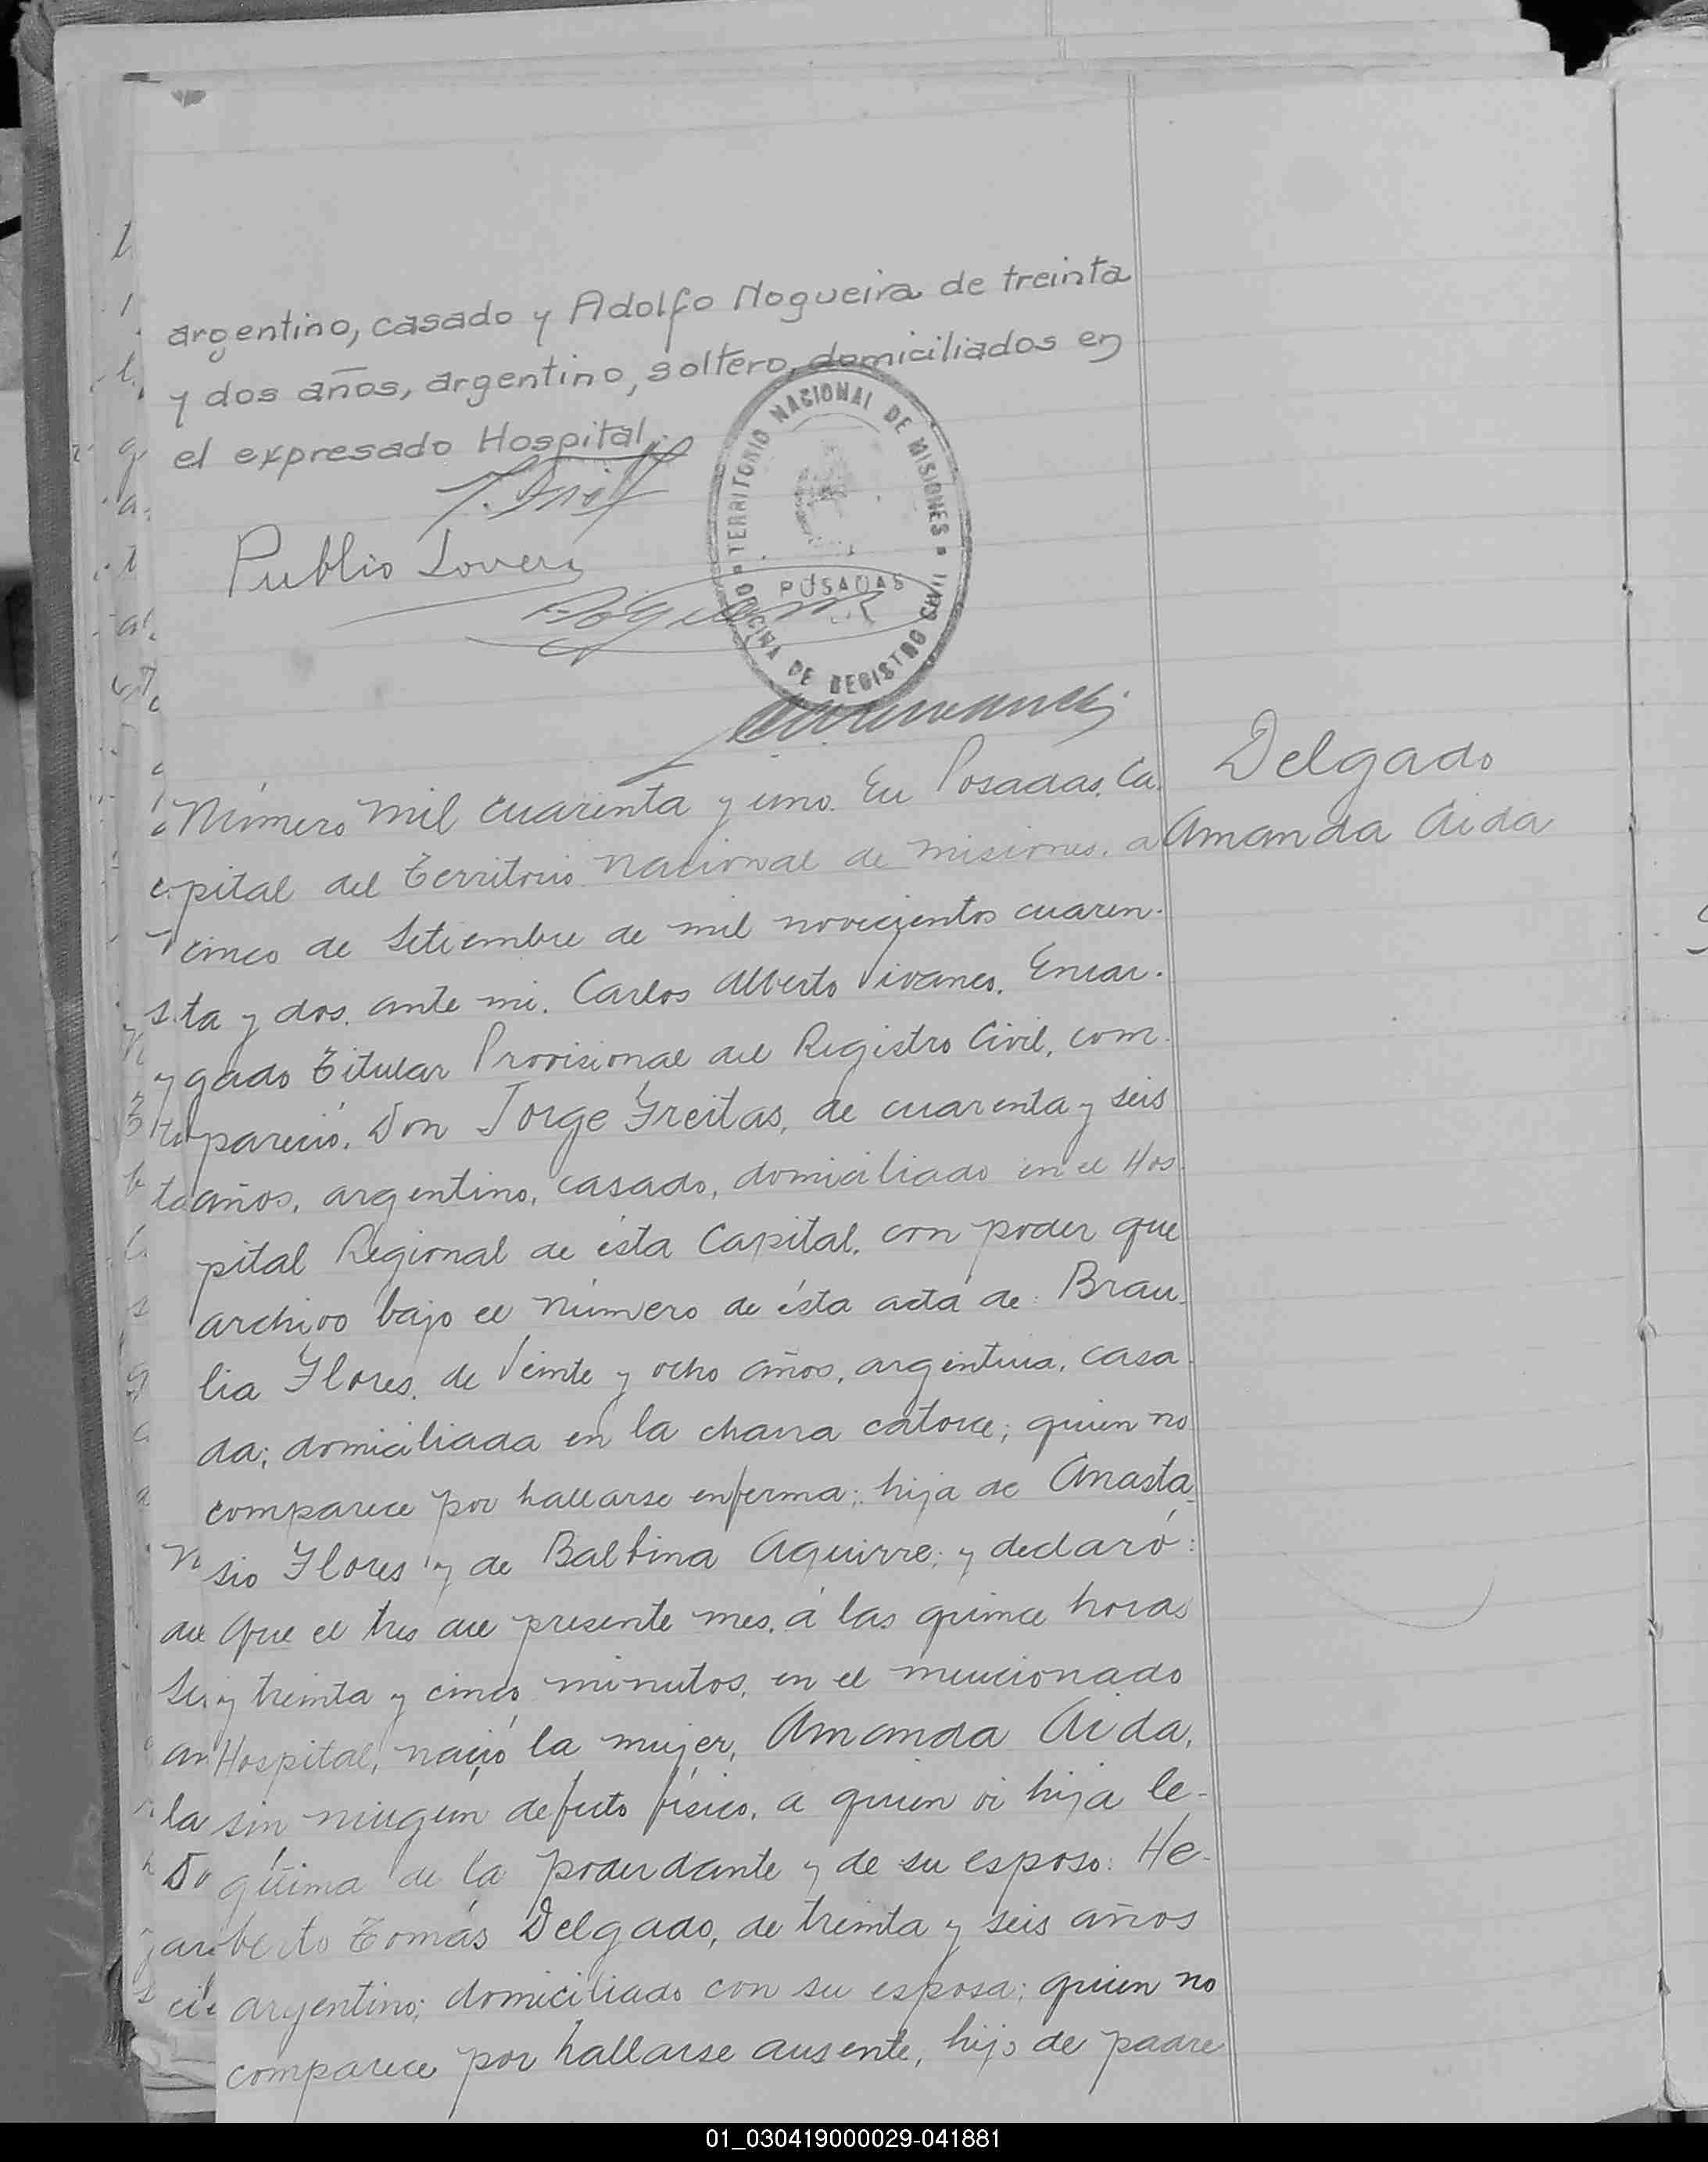 argentino, casado y Adolfo Nogueira de treinta
y dos años, argentino, soltero, domiciliados en
el expresado Hospital.
Publio Lovera
TERRITORIO NACIONAL DE MISIONES
POSADAS
OFICINA DE REGISTRO CIVIL
Delgado
Amanda Aida
Número mil cuarenta y uno. En Posadas, Ca
pital del Territorio Nacional de Misiones, a
cinco de Setiembre de mil novecientos cuaren-
ta y dos, ante mi, Carlos Alberto Vivanco, Encar-
gado Titular Provisional del Registro Civil, com-
pareció, Don Jorge Freitas, de cuarenta y seis
años, argentino, casado, domiciliado en el Hos-
pital Regional de ésta Capital, con poder que
archivo bajo el número de ésta acta de: Brau-
lia Flores, de veinte y ocho años, argentina, casa-
da; domiciliada en la chacra catorce; quien no
comparece por hallarse enferma; hija de Anasta-
sio Flores y de Balbina Aguirre; y declaró:
Que el tres del presente mes, á las quince horas
y treinta y cinco minutos, en el mencionado
Hospital, nació la mujer, Amanda Aida,
sin ningún defecto físico, a quien vi hija le-
gítima de la poderdante y de su esposo: He-
berto Tomás Delgado, de treinta y seis años
argentino; domiciliado con su esposa; quien no
comparece por hallarse ausente, hijo de padre
01_030419000029-041881